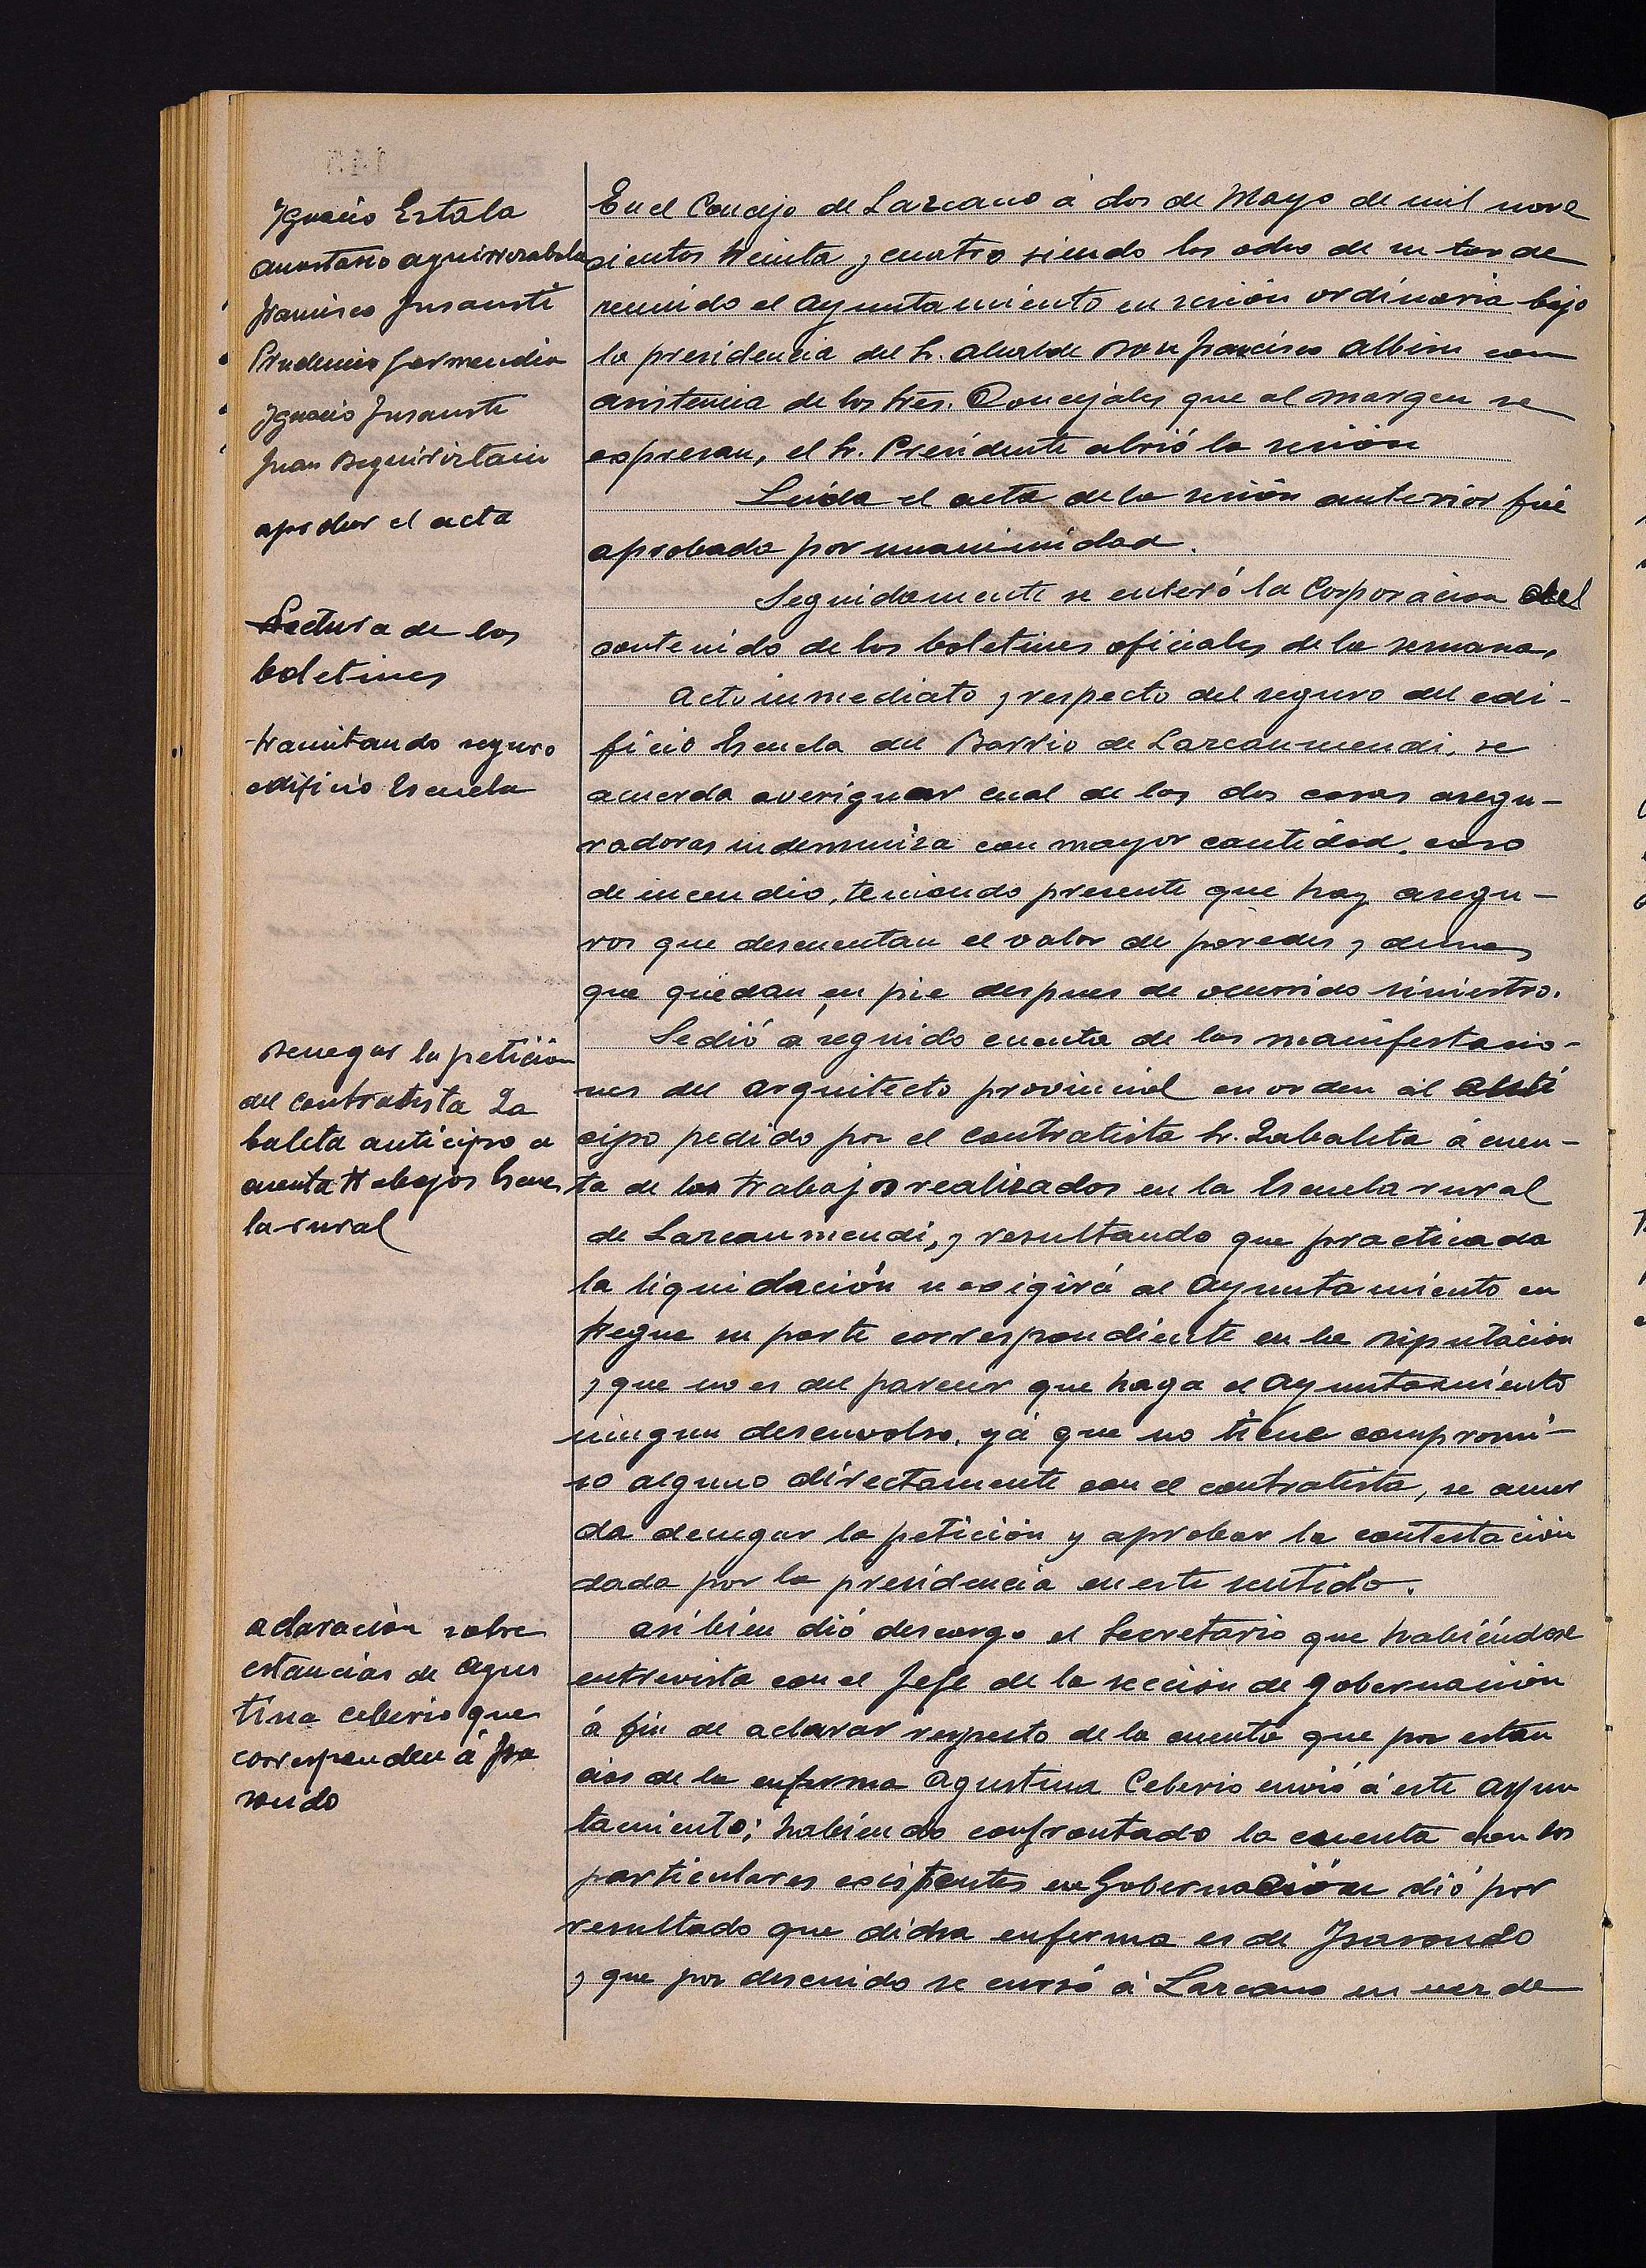 Ignacio Estala
Anastasio Aguirrezabala
Francisco Insausti
Prudencio Garmendia
Ignacio Insausti
Juan Beguiristain
aprobar el acta
Lectura de los
boletines
tramitando seguro
edificio Escuela
Denegar la petición
del contratista Za
baleta anticipo a
cuenta trabajos Escue
la rural
aclaración sobre
estancias de Agus
tina Ceberio que
corresponden á Isa
sondo
En el Concejo de Lazcano á dos de Mayo de mil nove
cientos treinta y cuatro siendo las ocho de su tarde
reunido el Ayuntamiento en sesión ordinaria bajo
la presidencia del Sr. Alcalde Don Francisco Albisu con
asistencia de los Sres. Concejales que al margen se
expresan, el Sr. Presidente abrió la sesión
Leida el acta de la sesión anterior fué
aprobada por unanimidad.
Seguidamente se enteró la Corporacion del
contenido de los boletines oficiales de la semana.
Acto inmediato y respecto del seguro del edi-
ficio Escuela del Barrio de Lazcaumendi, se
acuerda averiguar cual de las dos casas asegu-
radoras indemniza con mayor cantidad, caso
de incendio, teniendo presente que hay asegu-
ros que descuentan el valor de paredes y demas
que quedan en pie despues de ocurrido siniestro.
Se dió a seguido cuenta de las manifestacio-
nes del Arquitecto provincial en orden al anti
cipo pedido por el contratista Sr. Zabaleta á cuen-
ta de los trabajos realizados en la Escuela rural
de Lazcaumendi, y resultando que practicada
la liquidación se exigirá al Ayuntamiento en
tregue su parte correspondiente en la Diputacion
y que no es del parecer que haga el Ayuntamiento
ningun desenvolso, yá que no tiene compromi-
so alguno directamente con el contratista, se acuer
da denegar la petición y aprobar la contestación
dada por la presidencia en este sentido.
Asi bien dió descargo el Secretario que habiéndose
entrevista con el Jefe de la sección de Gobernación
á fin de aclarar respecto de la cuenta que por estan
cias de la enferma Agustina Ceberio envió á este Ayun
tamiento; habiendo confrontado la cuenta con los
particulares existentes en Gobernación dió por
resultado que dicha enferma es de Isasondo
y que por descuido se envió á Lazcano en vez de